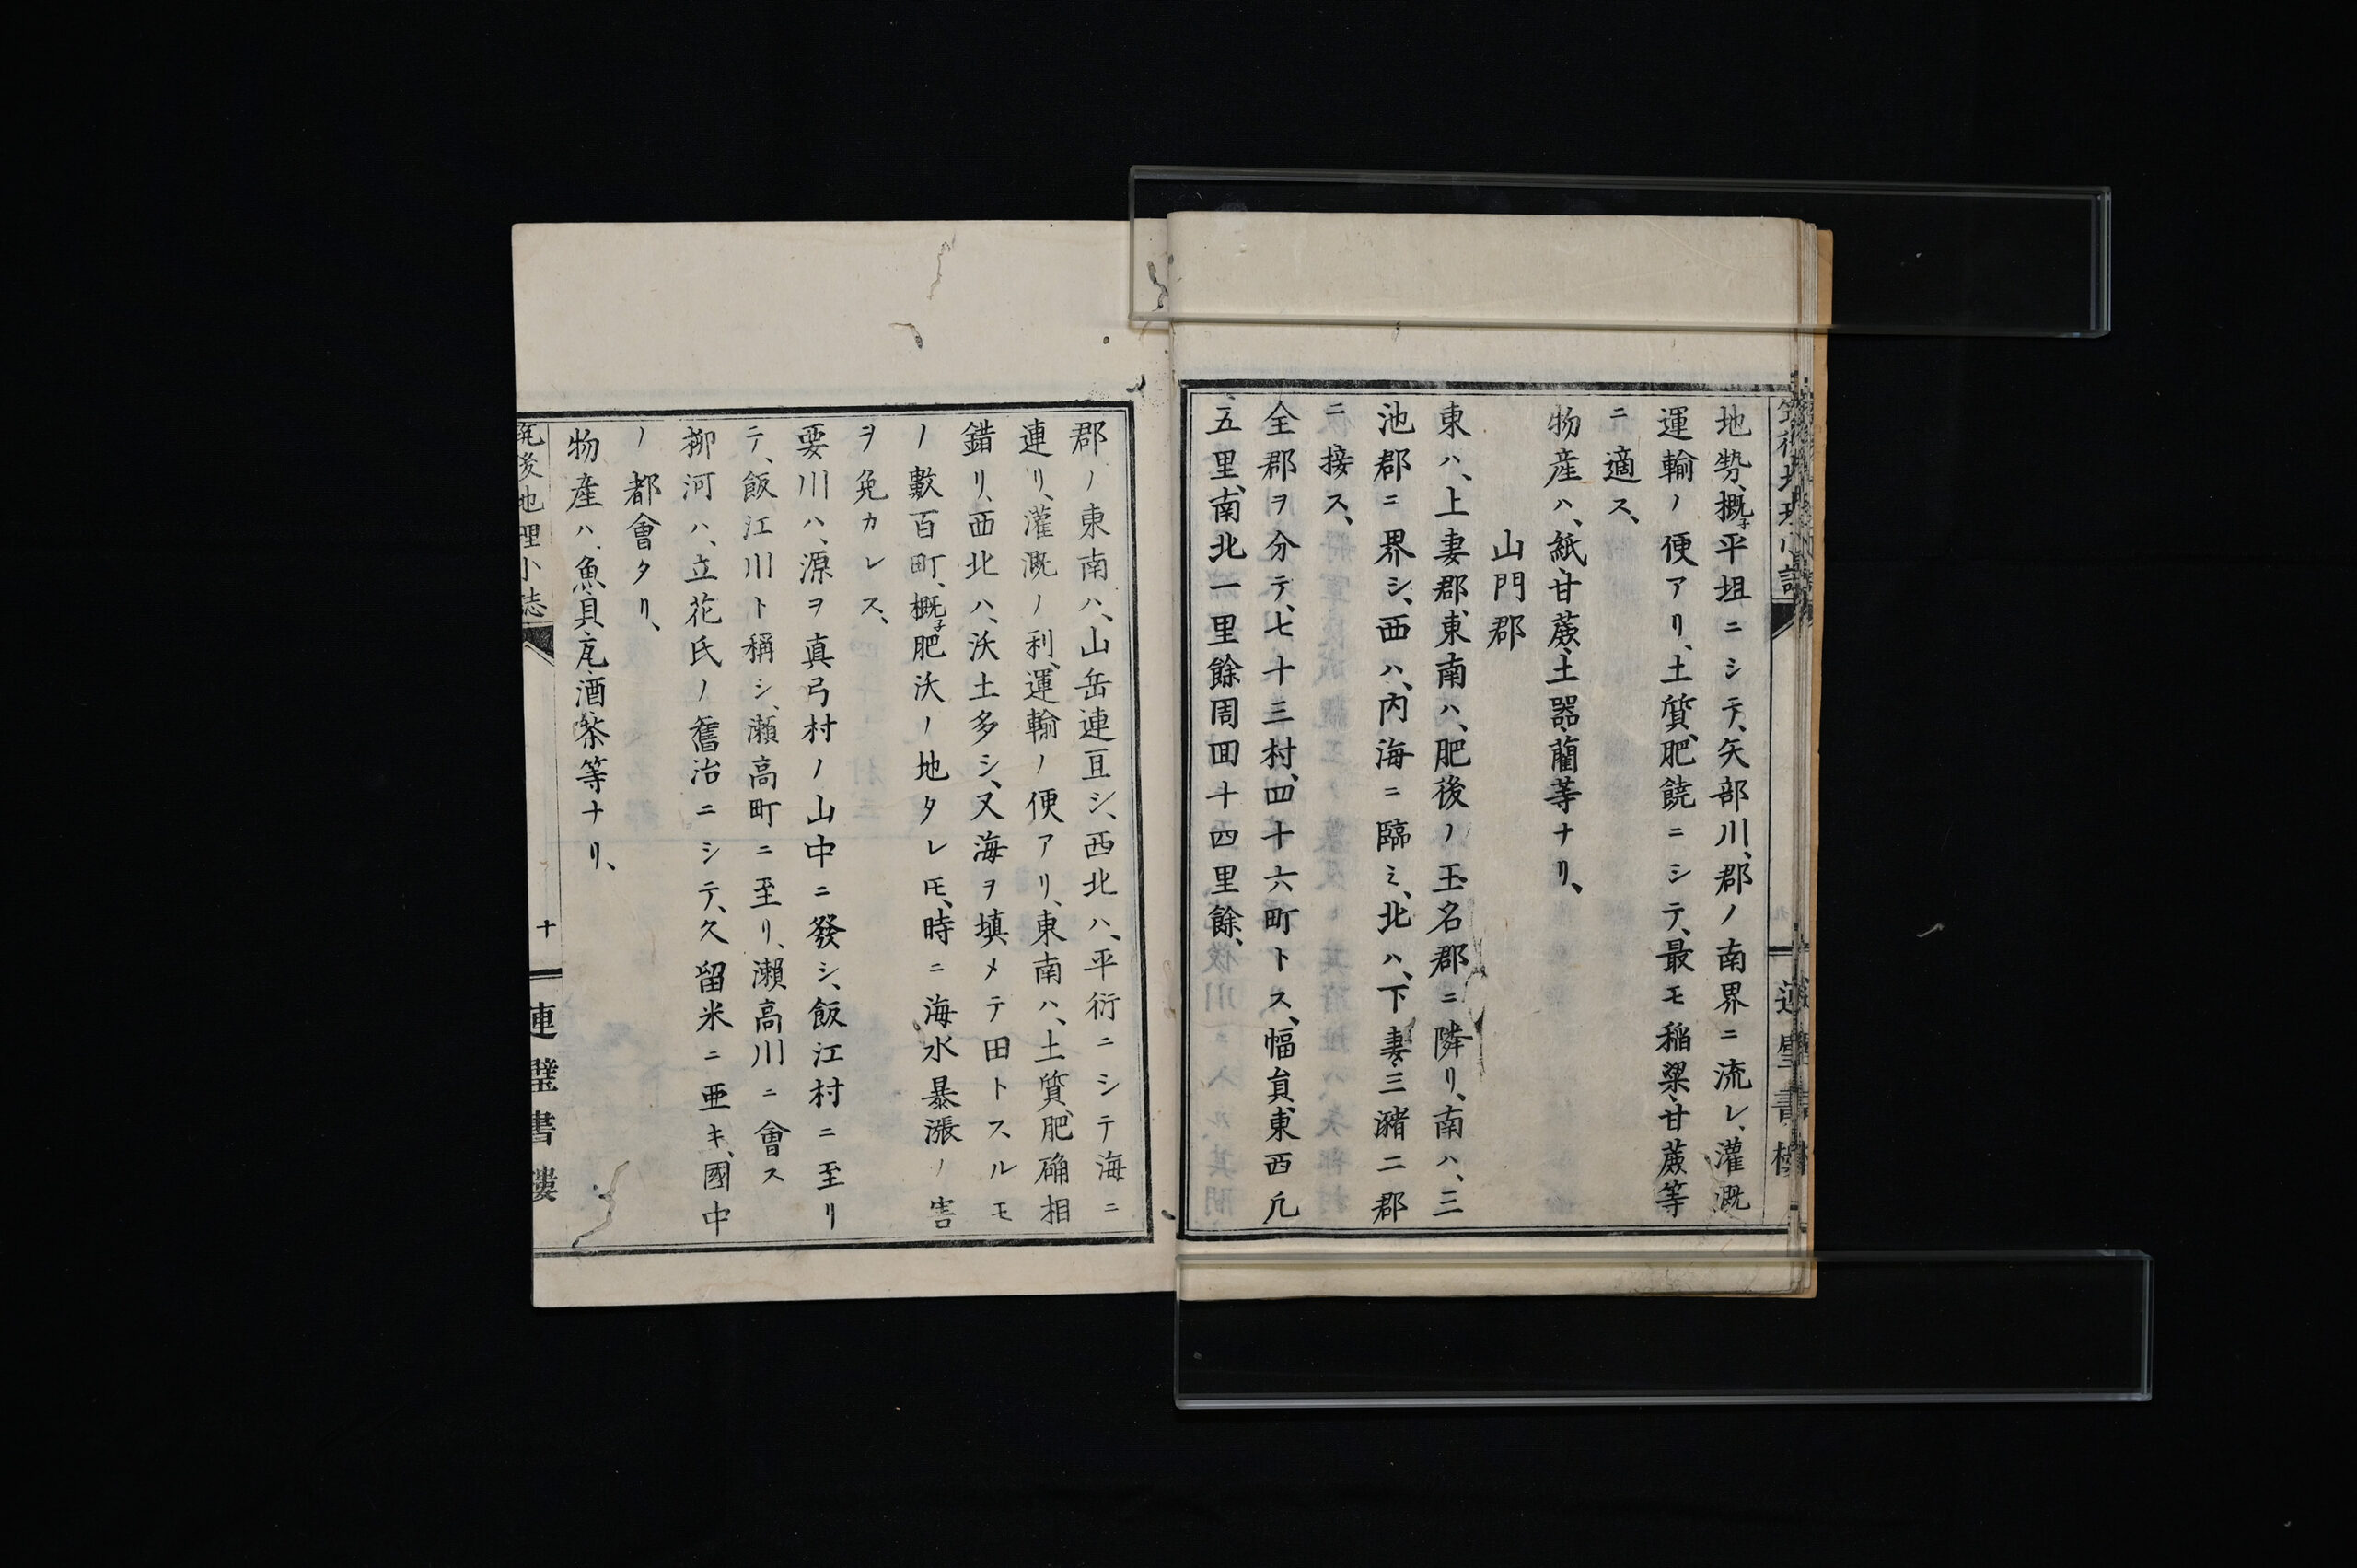 地勢、概子平坦ニシテ、矢部川、郡ノ南界ニ流レ、灌漑
運輸ノ便アリ、土質、肥饒ニシテ、最モ稲粱、甘蔗等
ニ適ス、
物産ハ、紙、甘蔗、土器、藺等ナリ、
山門郡
東ハ、上妻郡、東南ハ、肥後ノ玉名郡ニ隣リ、南ハ、三
池郡ニ界シ、西ハ、内海ニ臨ミ、北ハ、下妻、三瀦二郡
ニ接ス、
全郡ヲ分テ、七十三村、四十六町トス、幅員、東西凢
五里、南北一里餘、周囬十四里餘、
郡ノ東南ハ、山岳連亘シ、西北ハ、平衍ニシテ海ニ
連リ、灌漑ノ利、運輸ノ便アリ、東南ハ、土質、肥确相
錯リ、西北ハ、沃土多シ、又海ヲ填メテ田トスルモ
ノ數百町、概子肥沃ノ地タレ𪜈、時ニ海水暴漲ノ害
ヲ免カレス、
要川ハ、源ヲ真弓村ノ山中ニ發シ、飯江村ニ至リ
テ、飯江川ト稱シ、瀬高町ニ至リ、瀬高川ニ會ス
柳河ハ、立花氏ノ舊治ニシテ、久留米ニ亜キ、國中
ノ都會タリ、
物産ハ、魚、貝、瓦、酒、茶等ナリ、
筑後地理小誌
十
連璧書樓